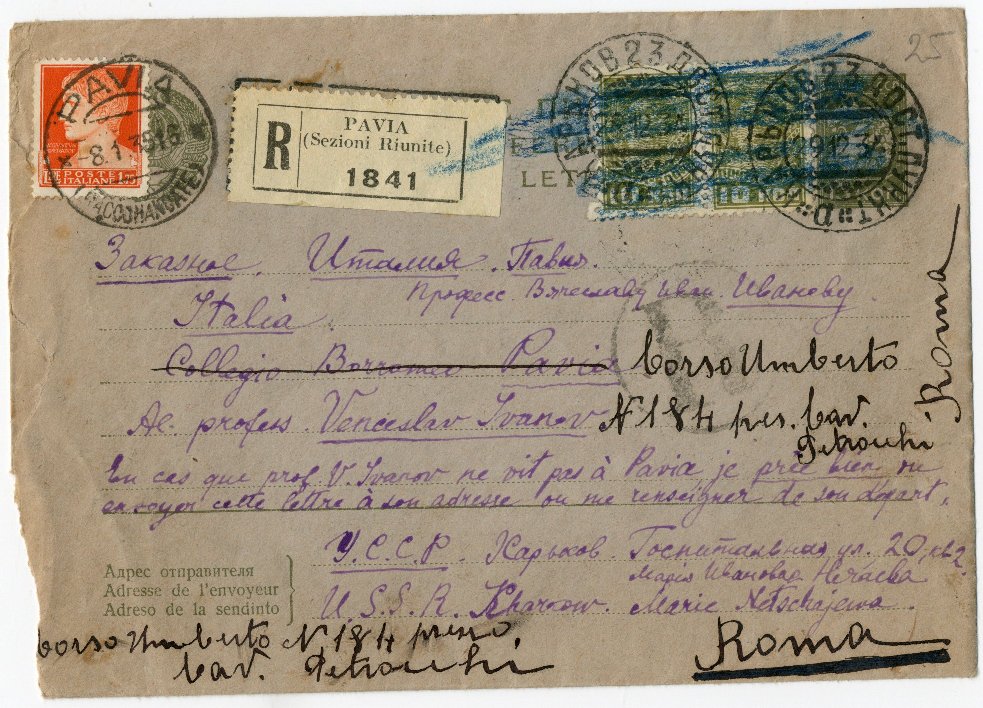 25
PAVIA
-8.1.3518
POSTE
ITALIANE 1,75
R
PAVIA
(Sezioni Riunite)
1841
LET
23
29 12 34
Заказное. Италия. Павия.
Професс Вячеславу Иван. Иванову.
Italia
Collegio Borromeo Pavia
Corso Umberto
Al. profess. Venceslav Ivanov
N 184 pres. Cav.
Petrocchi
Roma
En cas que prof. V. Ivanov ne vit pas à Pavia je prie bien ou
envoyer cette lettre à son adresse ou me renseigner de son départ.
У.С.С.Р. Харьков. Госпитальная ул. 20, кв 2.
Мария Ивановна Нечаева
Адрес отправителя
Adresse de l'envoyeur
Adreso de la sendinto
U.S.S.R. Kharkow. Marie Netschajewa.
Corso Umberto N 184 presso.
Cav. Petrocchi
Roma